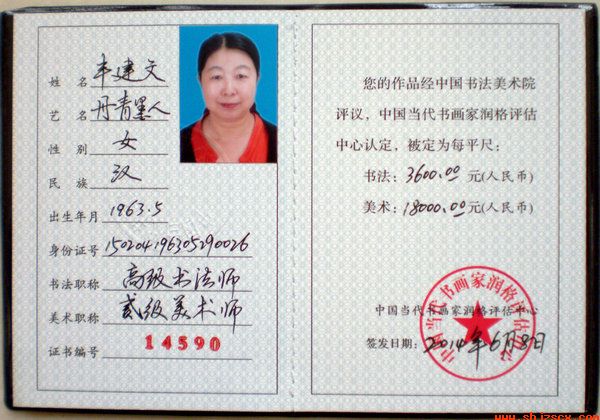 姓名 丰建文
艺名 丹青墨人
性别 女
民族 汉
出生年月 1963.5
身份证号 150204196305290026
书法职称 高级书法师
美术职称 贰级美术师
证书编号 14590
您的作品经中国书法美术院
评议，中国当代书画家润格评估
中心认定，被定为每平尺：
书法：3600.00 元(人民币)
美术：18000.00 元(人民币)
中国当代书画家润格评估中心
签发日期：2014年6月8日
中国当代书画家润格评估中心
www.sbjzscx.com